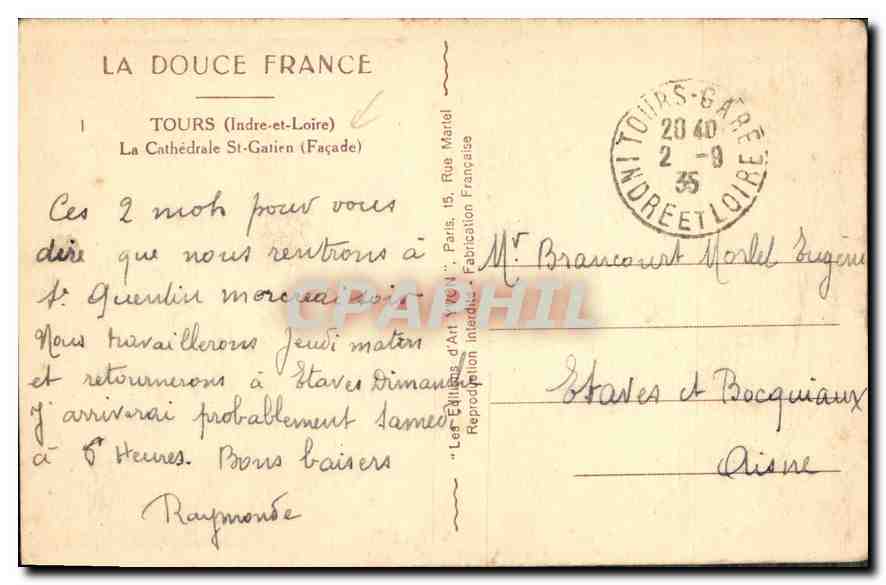 LA DOUCE FRANCE
TOURS (Indre-et-Loire)
La Cathédrale St-Gatien (Façade)
Ces 2 mots pour vous
dire que nous rentrons à
St Quentin mercredi soir
Nous travaillerons Jeudi matin
et retournerons à Etaves Dimanche
J'arriverai probablement Samedi
à 6 Heures. Bons baisers
Raymonde
"Les Editions d'Art YVON", Paris, 15, Rue Martel
Reproduction Interdite - Fabrication Française
TOURS-GARE
20 40
2 -9
35
INDRE ET LOIRE
Mr Brancourt Morlet Eugène
Etaves et Bocquiaux
Aisne
CPAPHIL